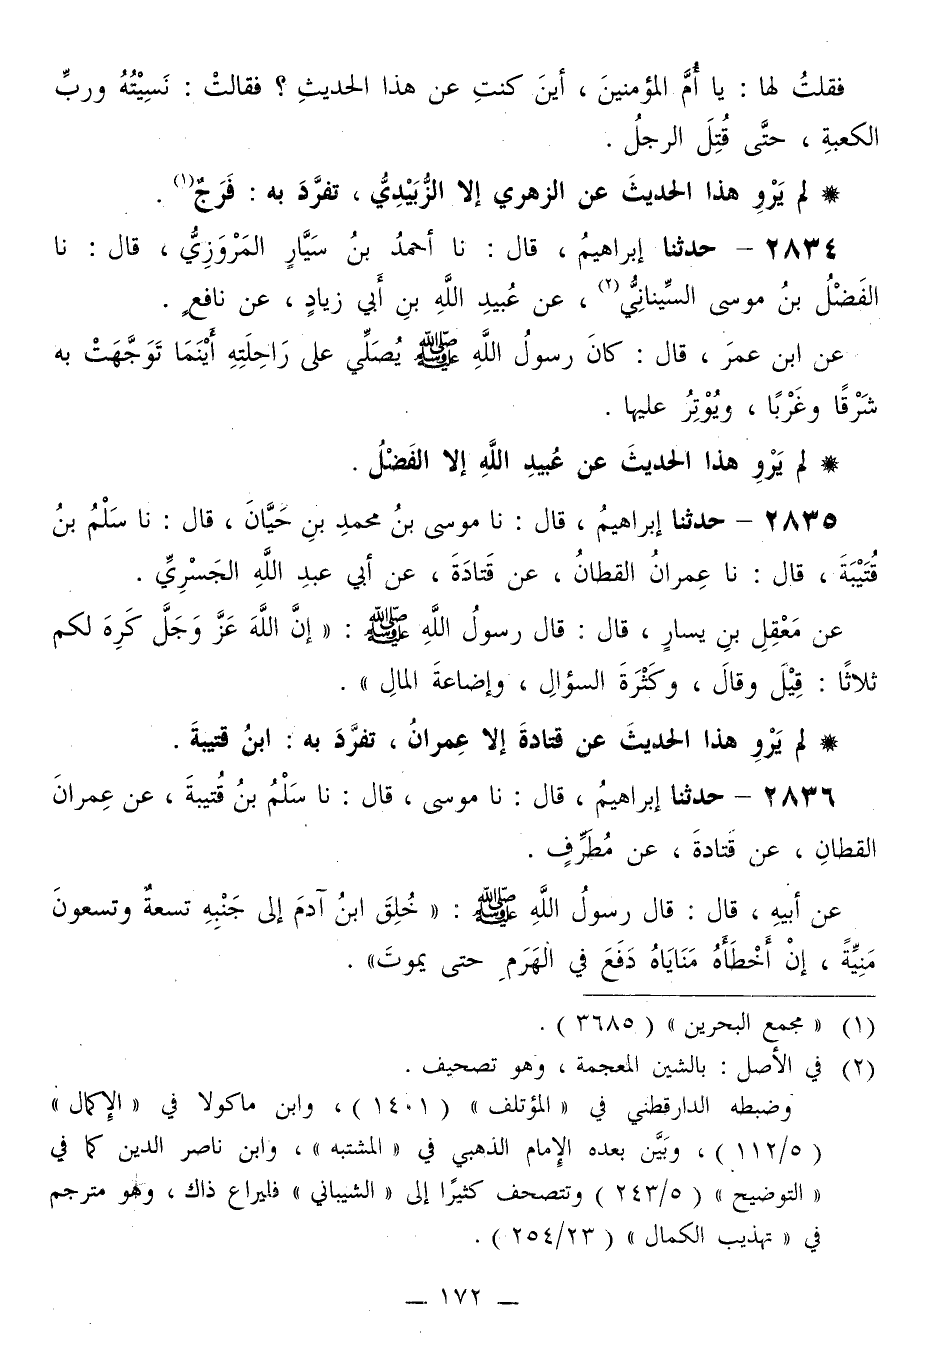 فقلتُ لها : يا أُمَّ المؤمنينَ ، أينَ كنتِ عن هذا الحديثِ ؟ فقالتْ : نَسِيْتُهُ وربِّ
الكعبةِ ، حتَّى قُتِلَ الرجلُ .
* لم يَرْوِ هذا الحديثَ عن الزهري إلا الزُّبَيْدِيُّ ، تفرَّدَ به : فَرَجٌ(١) .
٢٨٣٤ – حدثنا إبراهيمُ ، قال : نا أحمدُ بنُ سَيَّارٍ المَرْوَزِيُّ ، قال : نا
الفَضْلُ بنُ موسى السِّينانِيُّ(٢) ، عن عُبيدِ اللَّهِ بنِ أَبي زيادٍ ، عن نافعٍ .
عن ابن عمرَ ، قال : كانَ رسولُ اللَّهِ ﷺ يُصَلِّي على رَاحِلَتِهِ أَيْنَمَا تَوَجَّهَتْ به
شَرْقًا وغَرْبًا ، ويُوْتِرُ عليها .
* لم يَرْوِ هذا الحديثَ عن عُبيدِ اللَّهِ إلا الفَضْلُ .
٢٨٣٥ – حدثنا إبراهيمُ ، قال : نا موسى بنُ محمدِ بنِ حَيَّانَ ، قال : نا سَلْمُ بنُ
قُتَيْبَةَ ، قال : نا عِمرانُ القطانُ ، عن قَتادَةَ ، عن أبي عبدِ اللَّهِ الجَسْرِيِّ .
عن مَعْقِلِ بنِ يسارٍ ، قال : قال رسولُ اللَّهِ ﷺ : « إنَّ اللَّهَ عَزَّ وَجَلَّ كَرِهَ لكم
ثلاثًا : قِيْلَ وقالَ ، وكَثْرَةَ السؤالِ ، وإضاعةَ المالِ » .
* لم يَرْوِ هذا الحديثَ عن قتادةَ إلا عِمرانُ ، تفرَّدَ به : ابنُ قتيبةَ .
٢٨٣٦ – حدثنا إبراهيمُ ، قال : نا موسى ، قال : نا سَلْمُ بنُ قُتيبةَ ، عن عِمرانَ
القطانِ ، عن قَتادةَ ، عن مُطَرِّفٍ .
عن أبيهِ ، قال : قال رسولُ اللَّهِ ﷺ : « خُلِقَ ابنُ آدمَ إلى جَنْبِهِ تسعةٌ وتسعونَ
مَنِيِّةً ، إنْ أَخْطَأَهُ مَنَايَاهُ دَفَعَ في الْهَرَمِ حتى يموتَ» .
(١) « مجمع البحرين » ( ٣٦٨٥ ) .
(٢) في الأصل : بالشين المعجمة ، وهو تصحيف .
وضبطه الدارقطني في « المؤتلف » ( ١٤٠١ ) ، وابن ماكولا في « الإكمال »
( ١١٢/٥ ) ، وبَيَّن بعده الإمام الذهبي في « المشتبه » ، وابن ناصر الدين كما في
« التوضيح » ( ٢٤٣/٥ ) وتتصحف كثيرًا إلى « الشيباني » فليراع ذاك ، وهو مترجم
في « تهذيب الكمال » ( ٢٥٤/٢٣ ) .
— ١٧٢ —